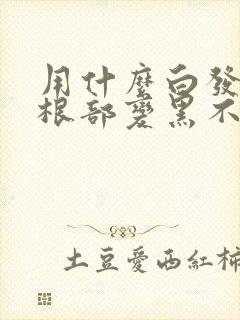 用什麼白發
根部變黑不
土豆愛西紅柿